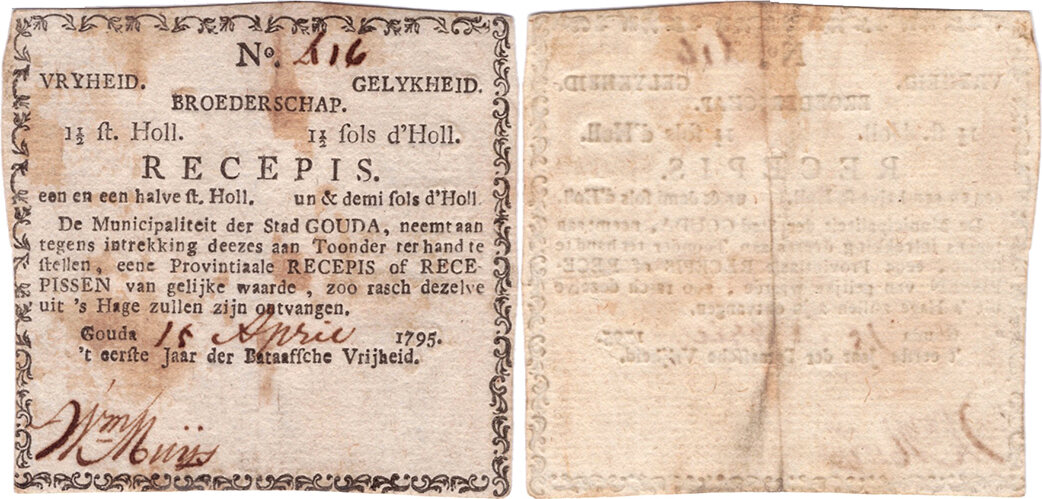 No. 216
VRYHEID. GELYKHEID.
BROEDERSCHAP.
1½ ſt. Holl. 1½ ſols d'Holl.
RECEPIS.
een en een halve ſt. Holl. un & demi ſols d'Holl.
De Municipaliteit der Stad GOUDA, neemt aan
tegens intrekking deezes aan Toonder ter hand te
ſtellen, eene Provintiaale RECEPIS of RECE-
PISSEN van gelijke waarde, zoo raſch dezelve
uit 's Hage zullen zijn ontvangen.
Gouda 15 April 1795.
't eerſte Jaar der Bataaffche Vrijheid.
Wm Muijs